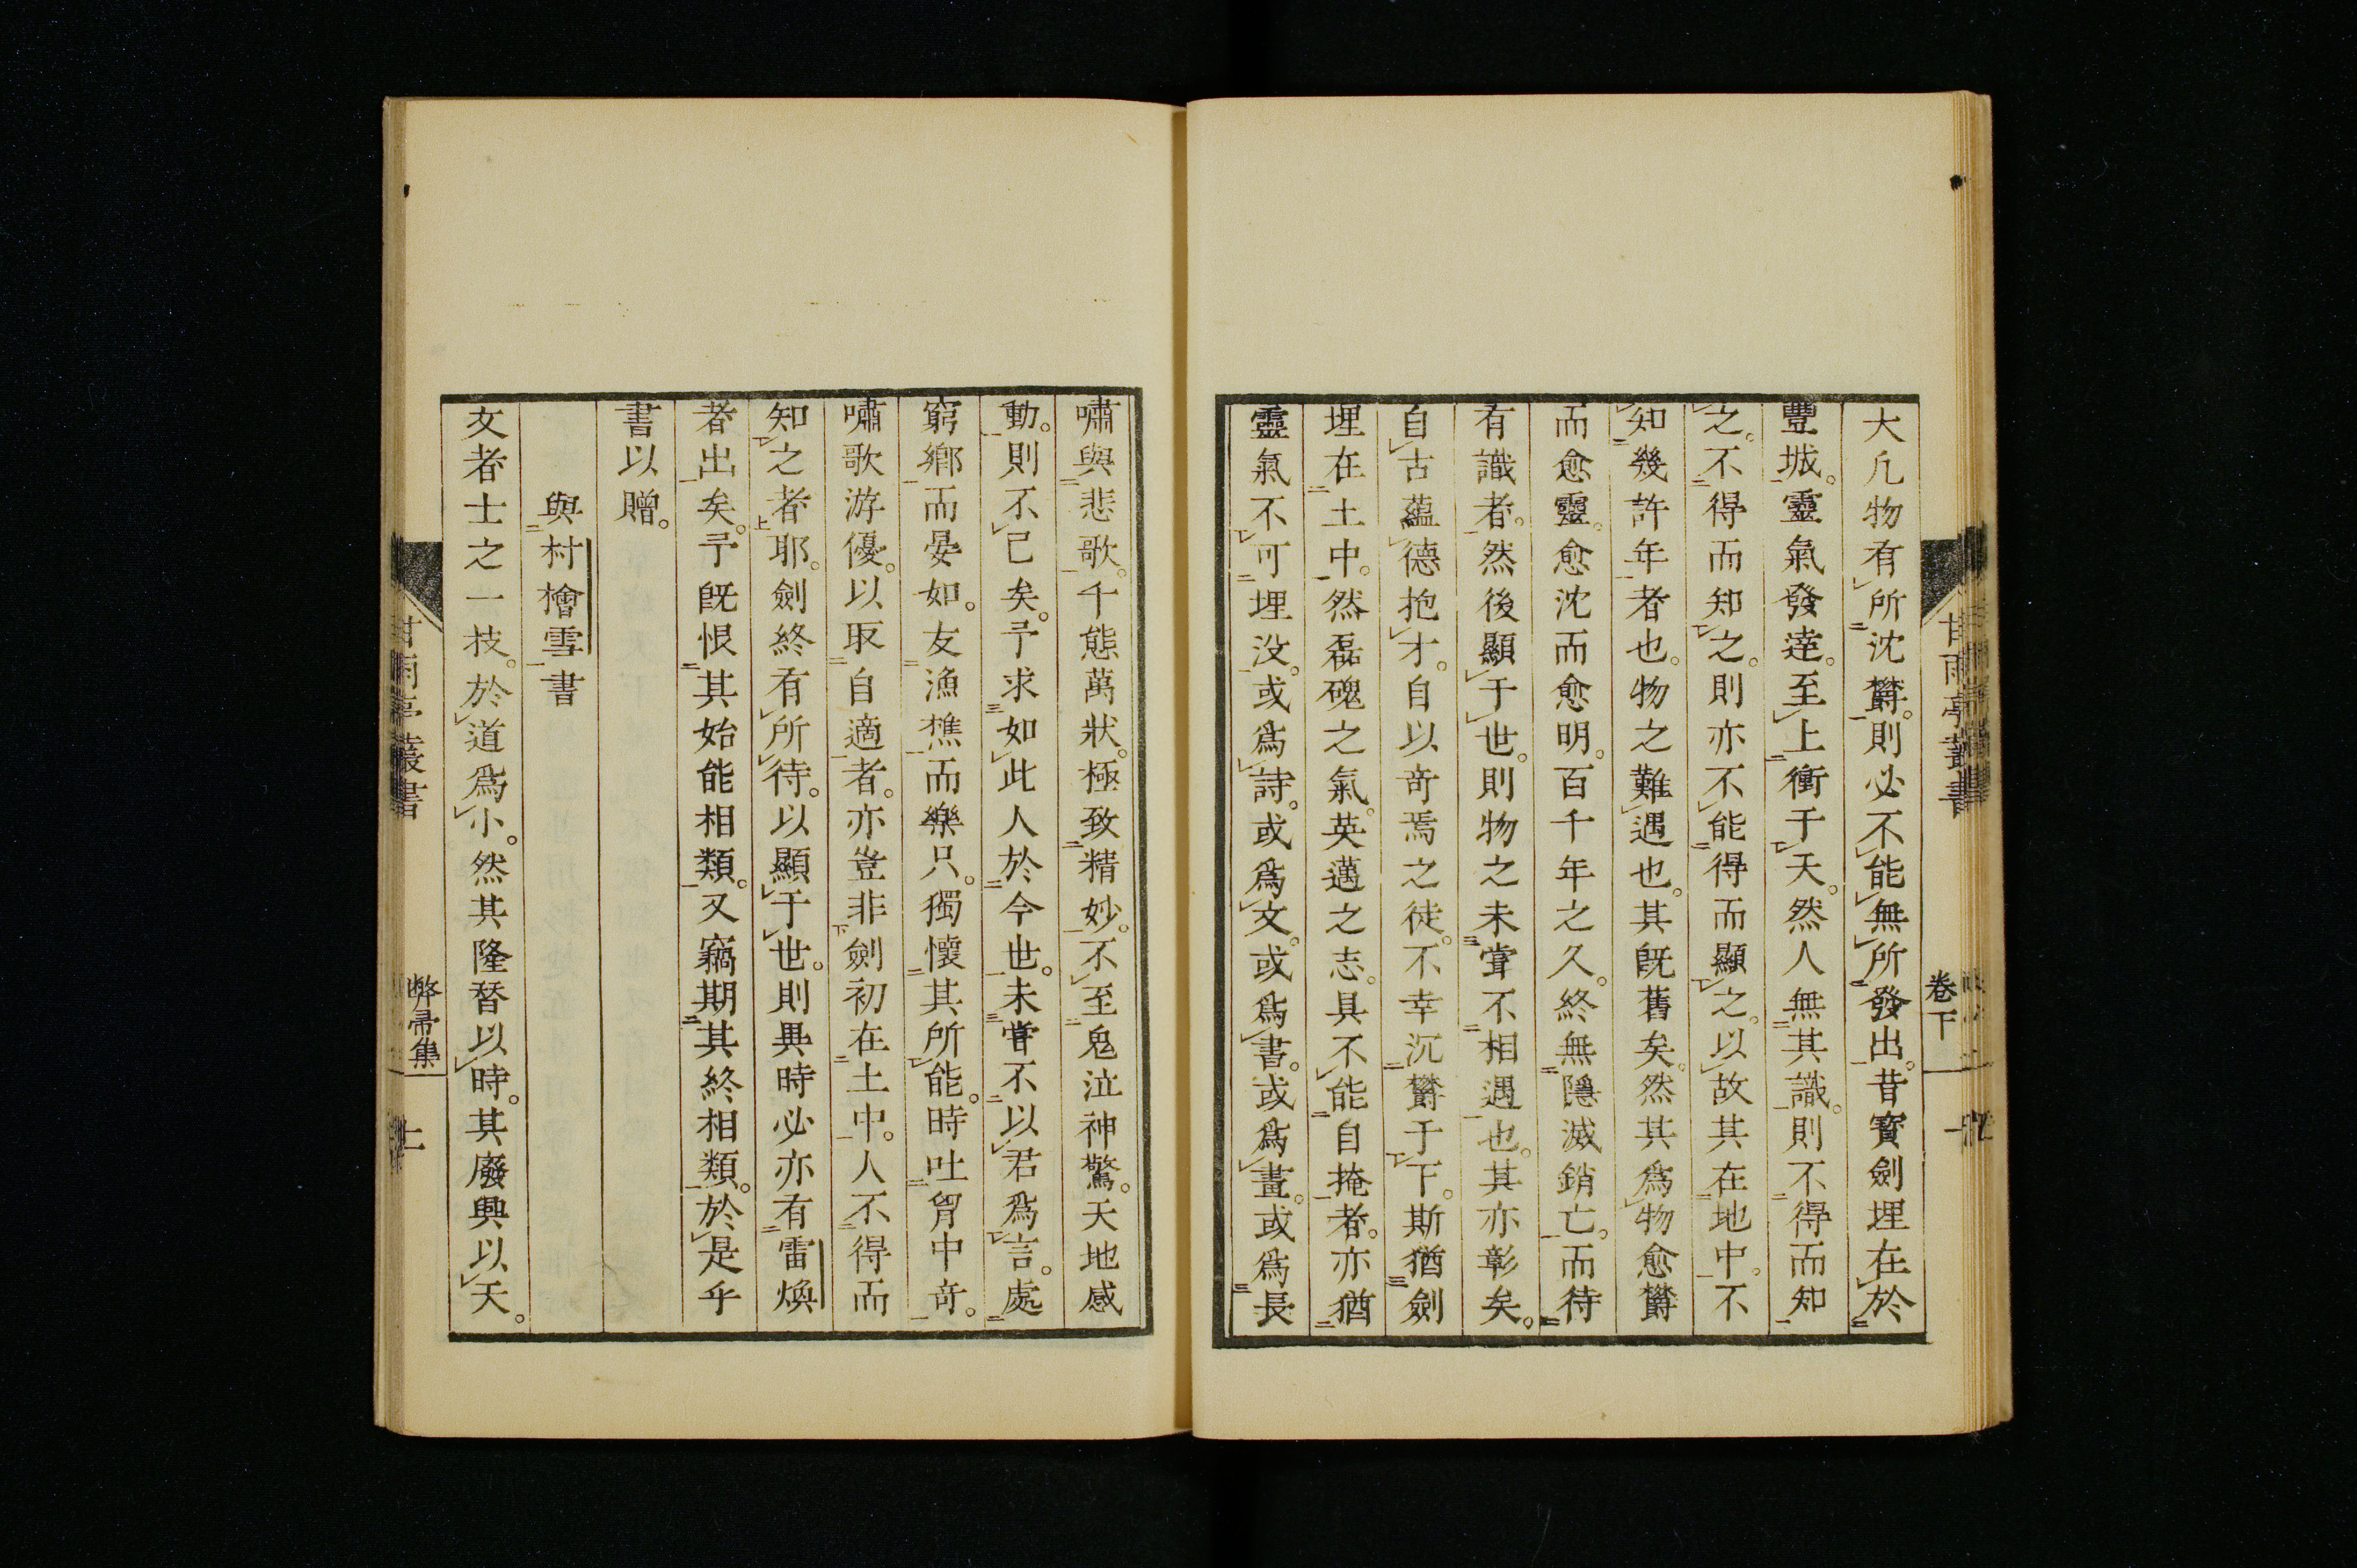 大凢物有所沈欝。則必不能無所發出。昔寳劍埋在於
豐城。靈氣發達。至上衝于天。然人無其識。則不得而知
之。不得而知之。則亦不能得而顯之。以故其在地中。不
知幾許年者也。物之難遇也。其既舊矣。然其爲物愈欝
而愈靈。愈沈而愈明。百千年之久。終無隱滅銷亡。而待
有識者。然後顯于世。則物之未嘗不相遇也。其亦彰矣。
自古蘊德抱才。自以奇焉之徒。不幸沉欝于下。斯猶劍
埋在土中。然磊磈之氣。英邁之志。具不能自掩者。亦猶
靈氣不可埋没。或爲詩。或爲文。或爲書。或爲畫。或爲長
嘯與悲歌。千態萬狀。極致精妙。不至鬼泣神驚。天地感
動。則不已矣。予求如此人於今世。未嘗不以君爲言。處
窮鄉而晏如。友漁樵而樂只。獨懷其所能。時吐胷中奇。
嘯歌游優。以取自適者。亦豈非劍初在土中。人不得而
知之者耶。劍終有所待。以顯于世。則異時必亦有雷煥
者出矣。予既恨其始能相類。又竊期其終相類。於是乎
書以贈。
與村檜雪書
文者士之一技。於道爲小。然其隆替以時。其廢興以天。
甘雨亭叢書
卷下
甘雨亭叢書
弊帚集